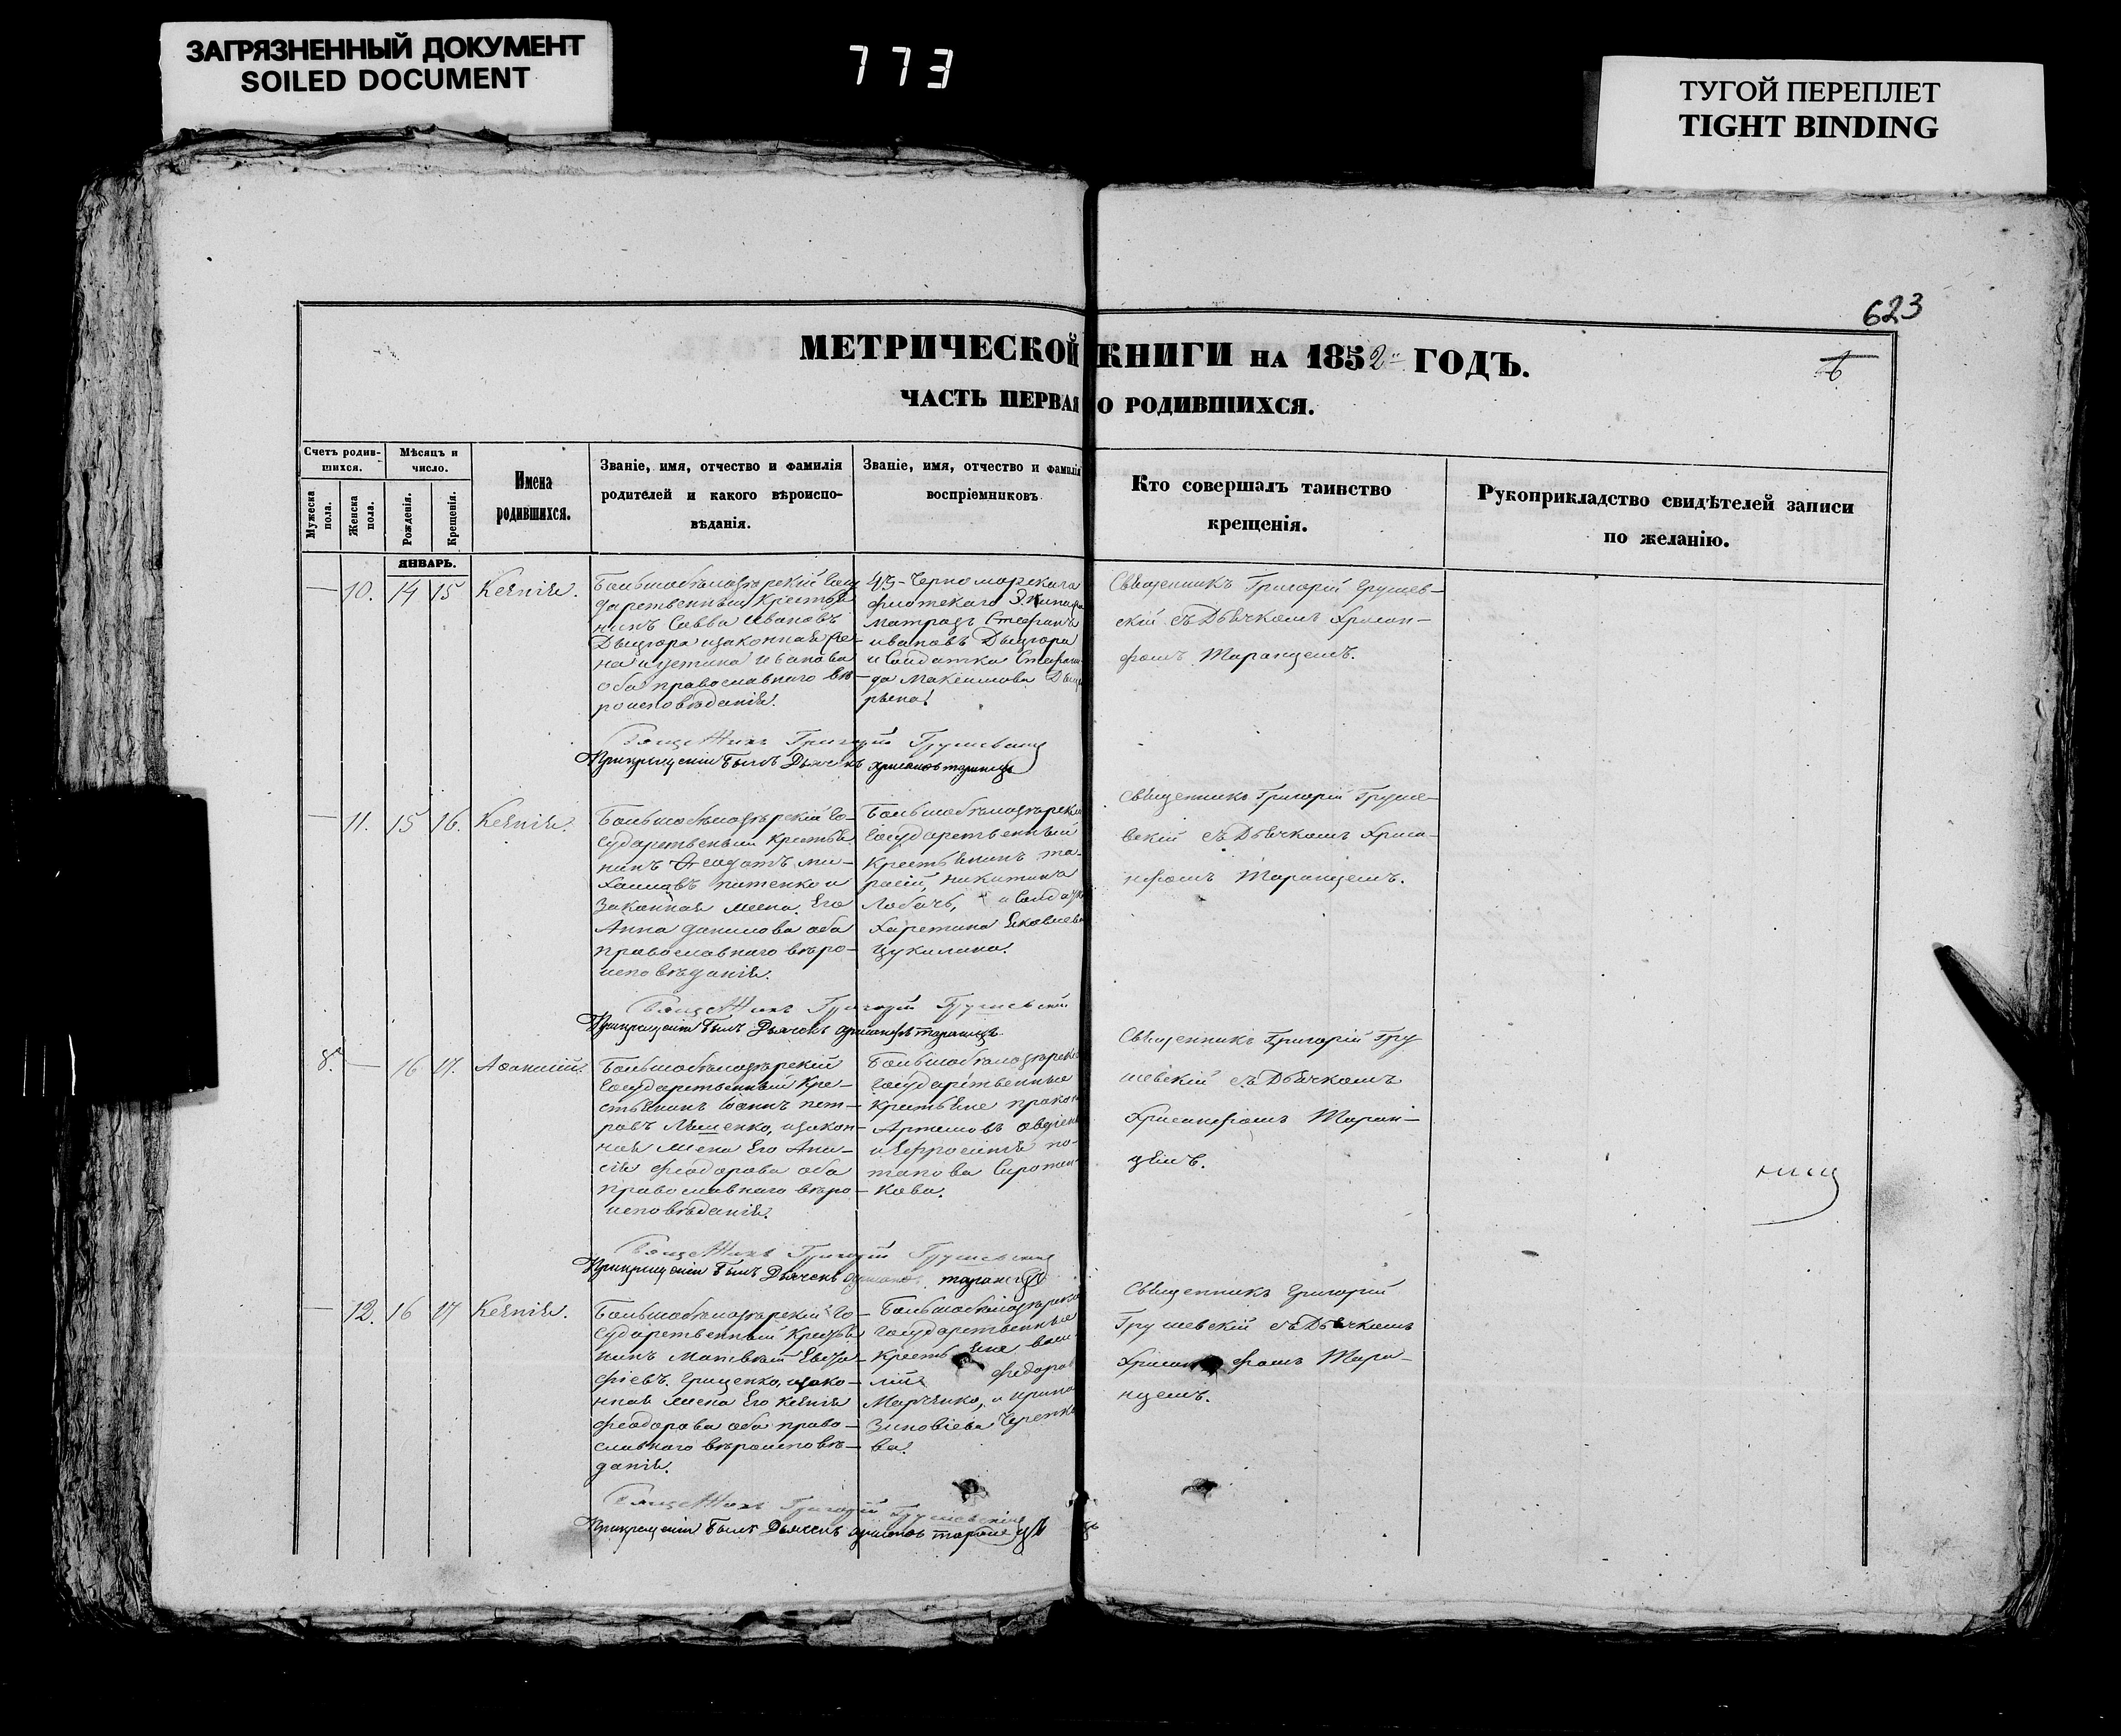 ЗАГРЯЗНЕННЫЙ ДОКУМЕНТ
SOILED DOCUMENT
773
ТУГОЙ ПЕРЕПЛЕТ
TIGHT BINDING
623
МЕТРИЧЕСКОЙ КНИГИ НА 1852 ГОДЪ.
ЧАСТЬ ПЕРВАЯ О РОДИВШИХСЯ.
Счетъ родив-
шихся.
Мужеска
пола.
Женска
пола.
Мѣсяцъ и
число.
Рожденія.
Крещенія.
Имена
родившихся.
Званіе, имя, отчество и фамилія
родителей и какого вѣроиспо-
вѣданія.
Званіе, имя, отчество и фамилія
воспріемниковъ
Кто совершалъ таинство
крещенія.
Рукоприкладство свидѣтелей записи
по желанію.
ЯНВАРЬ.
— 10. 14 15 Ксенія.
Большобѣлозѣрскій Госу
дарственный Крестья
нинъ Савва Ивановъ
Дыщора изаконная Же-
на Иустина Иванова
оба православнаго вѣ-
роисповѣданія.
43- Черноморскаго
флотскаго Экипажа
матрозъ Стефанъ
Ивановъ Дыщора
и Солдатка Стефани-
да Максимова
Священникъ Григорій Грушев-
скій съ Дьячкомъ Хрисан-
фомъ Таранцемъ.
Священникъ Григорій Грушевскій
Прикрещеніи былъ Дьячекъ
— 11. 15 16. Ксенія.
Большобѣлозѣрскій Го-
сударственный Крестья
нинъ Феодотъ Ми-
хаиловъ Питенко и
Законная Жена Его
Анна Данилова оба
православнаго вѣро-
исповѣданія.
Большобѣлозѣрскій
Государственный
Крестьянинъ Та-
расій, Никитинъ
Лобачъ, и Солдатка
Харетина Яковлева
Цукилина.
Священникъ Григорій Груше-
вскій съ Дьячкомъ Хриса-
нфомъ Таранцемъ.
Священникъ Григорій Грушевскій
Прикрещеніи былъ Дьячекъ
8. — 16 17. Афанасій.
Большобѣлозѣрскій
Государственный Кре-
стьянинъ Іоаннъ Пет-
ровъ Ляшенко, изакон-
ная Жена Его Ана-
сія Феодорова оба
православнаго вѣро-
исповѣданія.
Большобѣлозѣрскіе
Государственные
Крестьяне Прокопъ
Артемовъ
и Ефросинія По-
тапова Сиротен-
кова.
Священникъ Григорій Гру
шевскій съ Дьячкомъ
Хрисанфомъ Таран-
цемъ.
Священникъ Григорій Грушевскій
Прикрещеніи былъ Дьячекъ
— 12. 16 17 Ксенія.
Большобѣлозѣрскій Го-
сударственный Крестья
нинъ Матвѣй Евста-
фіевъ Грищенко, изако-
нная Жена Его Ксенія
Феодорова оба право-
славнаго вѣроисповѣ-
данія.
Большобѣлозѣрскіе
Государственные
Крестьяне Васи-
лій Федоровъ
Марченко, и Ирина
Зиновіева Черенко
ва.
Священникъ Григорій
Грушевскій съ Дьячкомъ
Хрисанфомъ Тара-
нцемъ.
Священникъ Григорій Грушевскій
Прикрещеніи былъ Дьячекъ